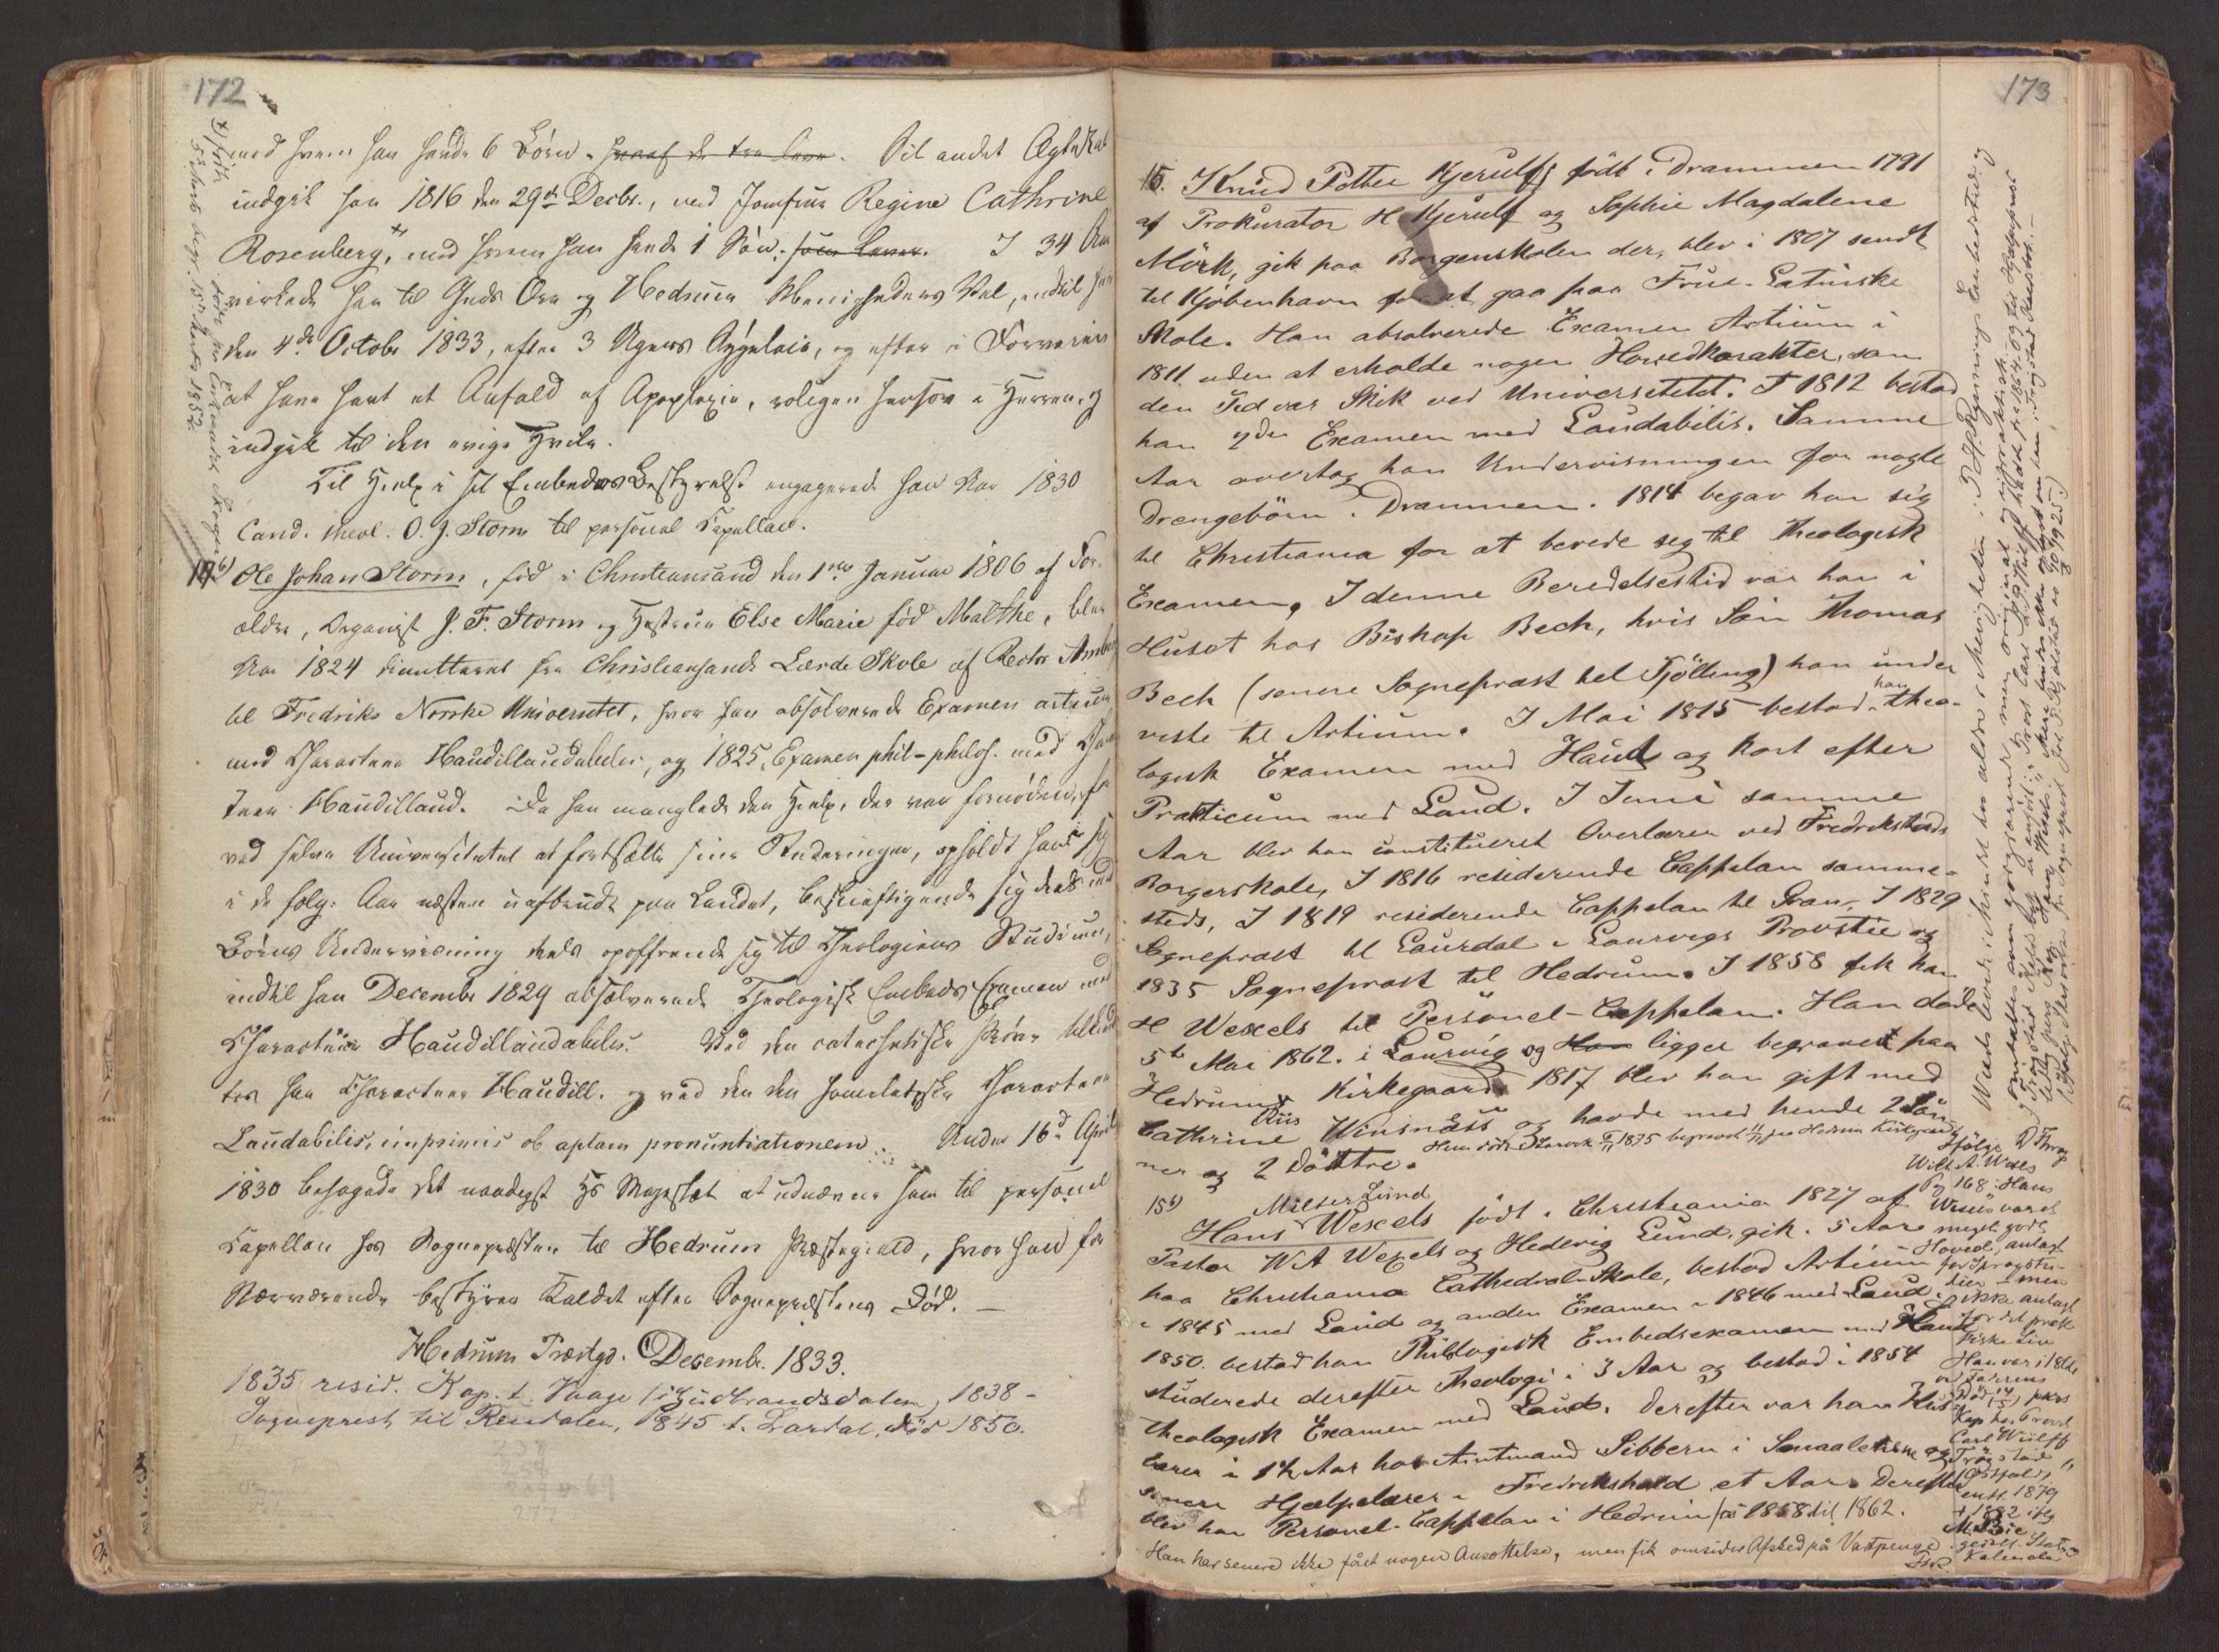 172
med hvem han havde 6 Börn, hvoraf de tre leve. Til andet Ægteskab
indgik han 1816 den 29de Decbr., med Jomfrue Regine Cathrine
Rosenberg, med hvem han havde 1 Sön, som lever. I 34 Aar
virkede han til Guds Ære og Hedrum Menigheders Vel, indtil han
den 4de Octobr 1833, efter 3 Ugers Sygeleie, og efter i Forveien
at have havt et Anfald af Apoplexie, rolig hensov i Herren, og
indgik til den evige Hvile.
Til Hjelp i sit Embedes Bestyrelse engagerede han Aar 1830
Cand. theol. O. J. Storm til personel Capellan.
Ole Johan Storm, fød i Christiansand den 1ste Januar 1806 af For-
ældre, Organist J. F. Storm og Hustrue Else Marie fød Malthe, blev
Aar 1824 dimitteret fra Christiansands Lærde Skole af Rector
til Fredriks Norske Universitet, hvor han absolverede Examen artium
med Characteer Haudillaudabilis, og 1825, Examen phil-philos. med Charac-
teer Haudillaud. Da han manglede den Hjelp, der var fornöden, for
ved selve Universitetet at fortsætte sine Studeringer, opholdt han sig
i de følg. Aar næsten uafbrudt paa Landet, beskjæftigende sig deels med
Börns Underviisning deels opoffrende sig til Theologiens Studium,
indtil han Decembr 1829 absolverede Theologisk Embeds Examen med
Characteer Haudillaudabilis. Ved den catechetiske Pröve tilkiend-
tes han Characteer Haudill. og ved den homiletiske Characteer
Laudabilis, imprimis ob aptam pronuntiationem. Under 16de April
1830 behagede det naadigst Hs Majestæt at udnævne ham til personel
Capellan hos Sognepræsten til Hedrum Præstegield, hvor han for
Nærværende bestyrer Kaldet efter Sognepræstens Död. —
Hedrum Præstgd. Decembr. 1833.
1835 resid. Kap. t. Vaage i Gudbrandsdalen, 1838 -
Sogneprest til Rendalen, 1845 t. Lardal, død 1850.
173
15. Knud Petter Kjerulf, födt i Drammen 1791
af Prokurator H Kjerulf og Sophie Magdalene
Mörk, gik paa Borgerskolen der, blev i 1807 sendt
til Kjöbenhavn for at gaa paa Frue-Latinske
Skole. Han absolverede Examen Artium i
1811 uden at erholde nogen Hovedkarakter, som
den Tid var Skik ved Universitetet. I 1812 bestod
han 2den Examen med Laudabilis. Samme
Aar overtog han Undervisningen for nogle
Drengebörn i Drammen. 1814 begav han sig
til Christiania for at berede sig til Theologisk
Examen. I denne Beredelsestid var han i
Huset hos Biskop Bech, hvis Sön Thomas
Bech (senere Sogneprast til Tjölling) han under
viste til Artium. I Mai 1815 bestod han theo-
logisk Examen med Haud og kort efter
Prakticum med Laud. I Juni samme
Aar blev han constitueret Overlærer ved Fredrikstads
Borgerskole, I 1816 residerende Cappelan samme-
steds, I 1819 residerende Cappelan til Gran, I 1829
Sogneprast til Laurdal i Laurvigs Provstie og
1835 Sogneprast til Hedrum. I 1858 fik han
H Wexels til Personel-Cappelan. Han döde
5te Mai 1862 i Laurvig og Han ligger begravet paa
Hedrums Kirkegaard. 1817 blev han gift med
Cathrine Riis Winsnæss og havde med hende 2 Søn-
ner og 2 döttre. Hun døde i Larvik 1875 begravet paa Hedrum Kirkegaard
15b) Milter Lund
Hans Wexels födt i Christiania 1827 af
Pastor WA Wexels og Hedevig Lund, gik 5 Aar
paa Christiania Cathedral-Skole, bestod Artium
i 1845 med Laud og anden Examen i 1846 med Laud.
1850 bestod han Philologisk Embedsexamen med Haud
studerede derefter Theologi i 3 Aar og bestod i 1854
theologisk Examen med Laud. Derefter var han Hus-
lærer i 1½ Aar hos Amtmand Sibbern i Smaalenene og
senere Hjælpelærer i Fredrikshald et Aar. Derefter
blev han Personel-Cappelan i Hedrum fra 1858 til 1862.
Han har senere ikke fået nogen Ansættelse, men fik omsider Afsked på Vartpenge.
Ifölge
Wilh. A. Wexels
Pg 168: Hans
Wexels var et
meget godt
Hoved, anlagt
for Sprogstu-
dier - men
ikke anlagt
for det prak-
tiske Liv
Han var i
pers
Kap. hos Provst
Carl Wulff
Trögstad
Östfold,
1879
1882
Stats
Kalender